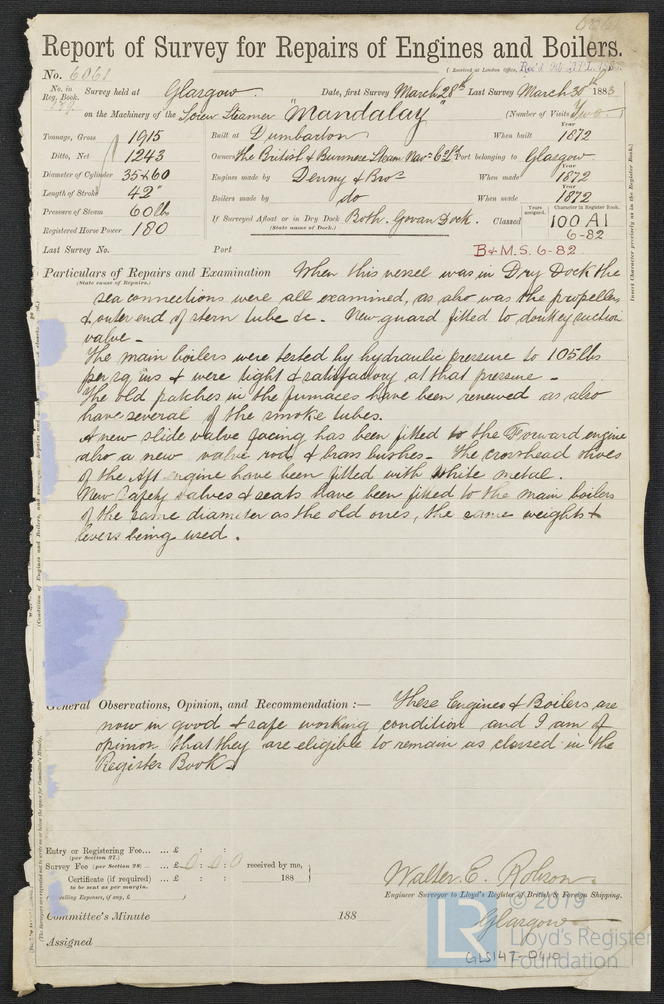 Report of Survey for Repairs of Engines and Boilers.
No. 6061
(Received at London Office,
No. in Reg. Book. Survey held at Glasgow. Date, first Survey March 28th Last Survey March 30th 1883
on the Machinery of the Screw Steamer "Mandalay" (Number of Visits Two)
Tonnage, Gross 1915 Built at Dumbarton When built Year 1872
Ditto, Net 1243 Owners The British & Burmese Steam Navn Co Ld Port belonging to Glasgow.
Diameter of Cylinder 35 & 60 Engines made by Denny & Bros When made Year 1872
Length of Stroke 42" Boilers made by do When made Year 1872
Pressure of Steam 60 lb If Surveyed Afloat or in Dry Dock Both. Govan Dock. Classed Years assigned. Character in Register Book. 100 A1
(State name of Dock.) 6-82
Registered Horse Power 180
Last Survey No. Port B & M.S. 6-82
Particulars of Repairs and Examination When this vessel was in Dry Dock the
(State cause of Repairs.)
sea connections were all examined, as also was the propellers
& outer end of stern tube &c. New guard fitted to donkey suction
valve -
The main boilers were tested by hydraulic pressure to 105 lbs
per sq ins & were tight & satisfactory at that pressure -
The old patches in the furnaces have been renewed as also
have several of the smoke tubes.
A new slide valve facing has been fitted to the Forward engine
also a new valve rod & brass bushes - The crosshead shoes
of the Aft engine have been fitted with White metal.
New Safety valves & seats have been fitted to the main boilers
of the same diameter as the old ones, the same weights &
levers being used.
General Observations, Opinion, and Recommendation :— These Engines & Boilers are
now in good & safe working condition and I am of
opinion that they are eligible to remain as classed in the
Register Book -
Entry or Registering Fee... ... £ : :
(per Section 27.)
Survey Fee (per Section 28) ... ... £ 0 : 0 : 0 received by me,
Certificate (if required) ... £ : : 188
to be sent as per margin.
(Travelling Expenses, if any, £ )
Walter C. Robson
Engineer Surveyor to Lloyd's Register of British & Foreign Shipping.
Committee's Minute 188
Glasgow
Assigned
GLS147-0410
Insert Character precisely as in the Register Book.
LR
© 2019
Lloyd's Register
Foundation